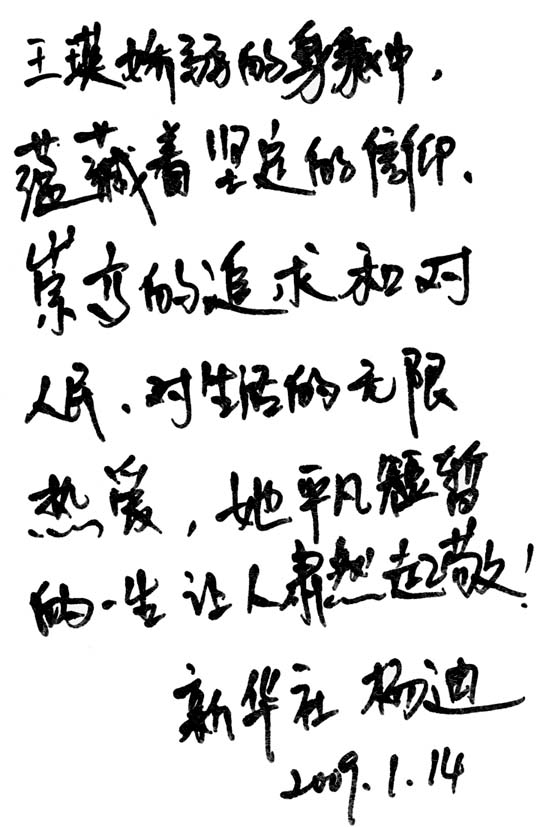 王瑛娇弱的身躯中，
蕴藏着坚定的信仰、
崇高的追求和对
人民、对生活的无限
热爱，她平凡短暂
的一生让人肃然起敬！
新华社 杨迪
2009.1.14